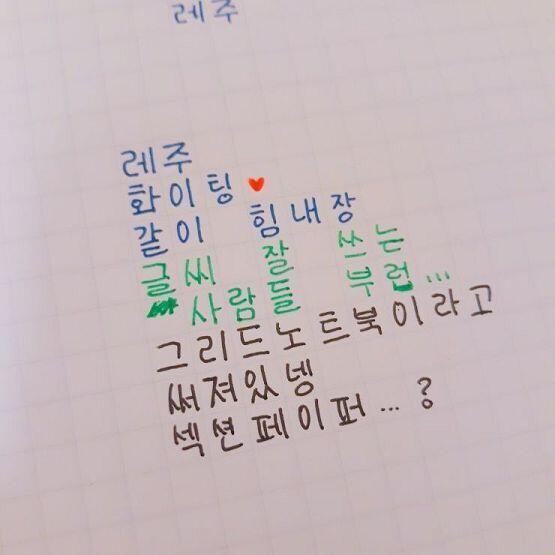 레주
레주
화이팅♥
같이 힘내장
글씨 잘 쓰는
사람들 부럽...
그리드노트북이라고
써져있넹
섹션페이퍼...?